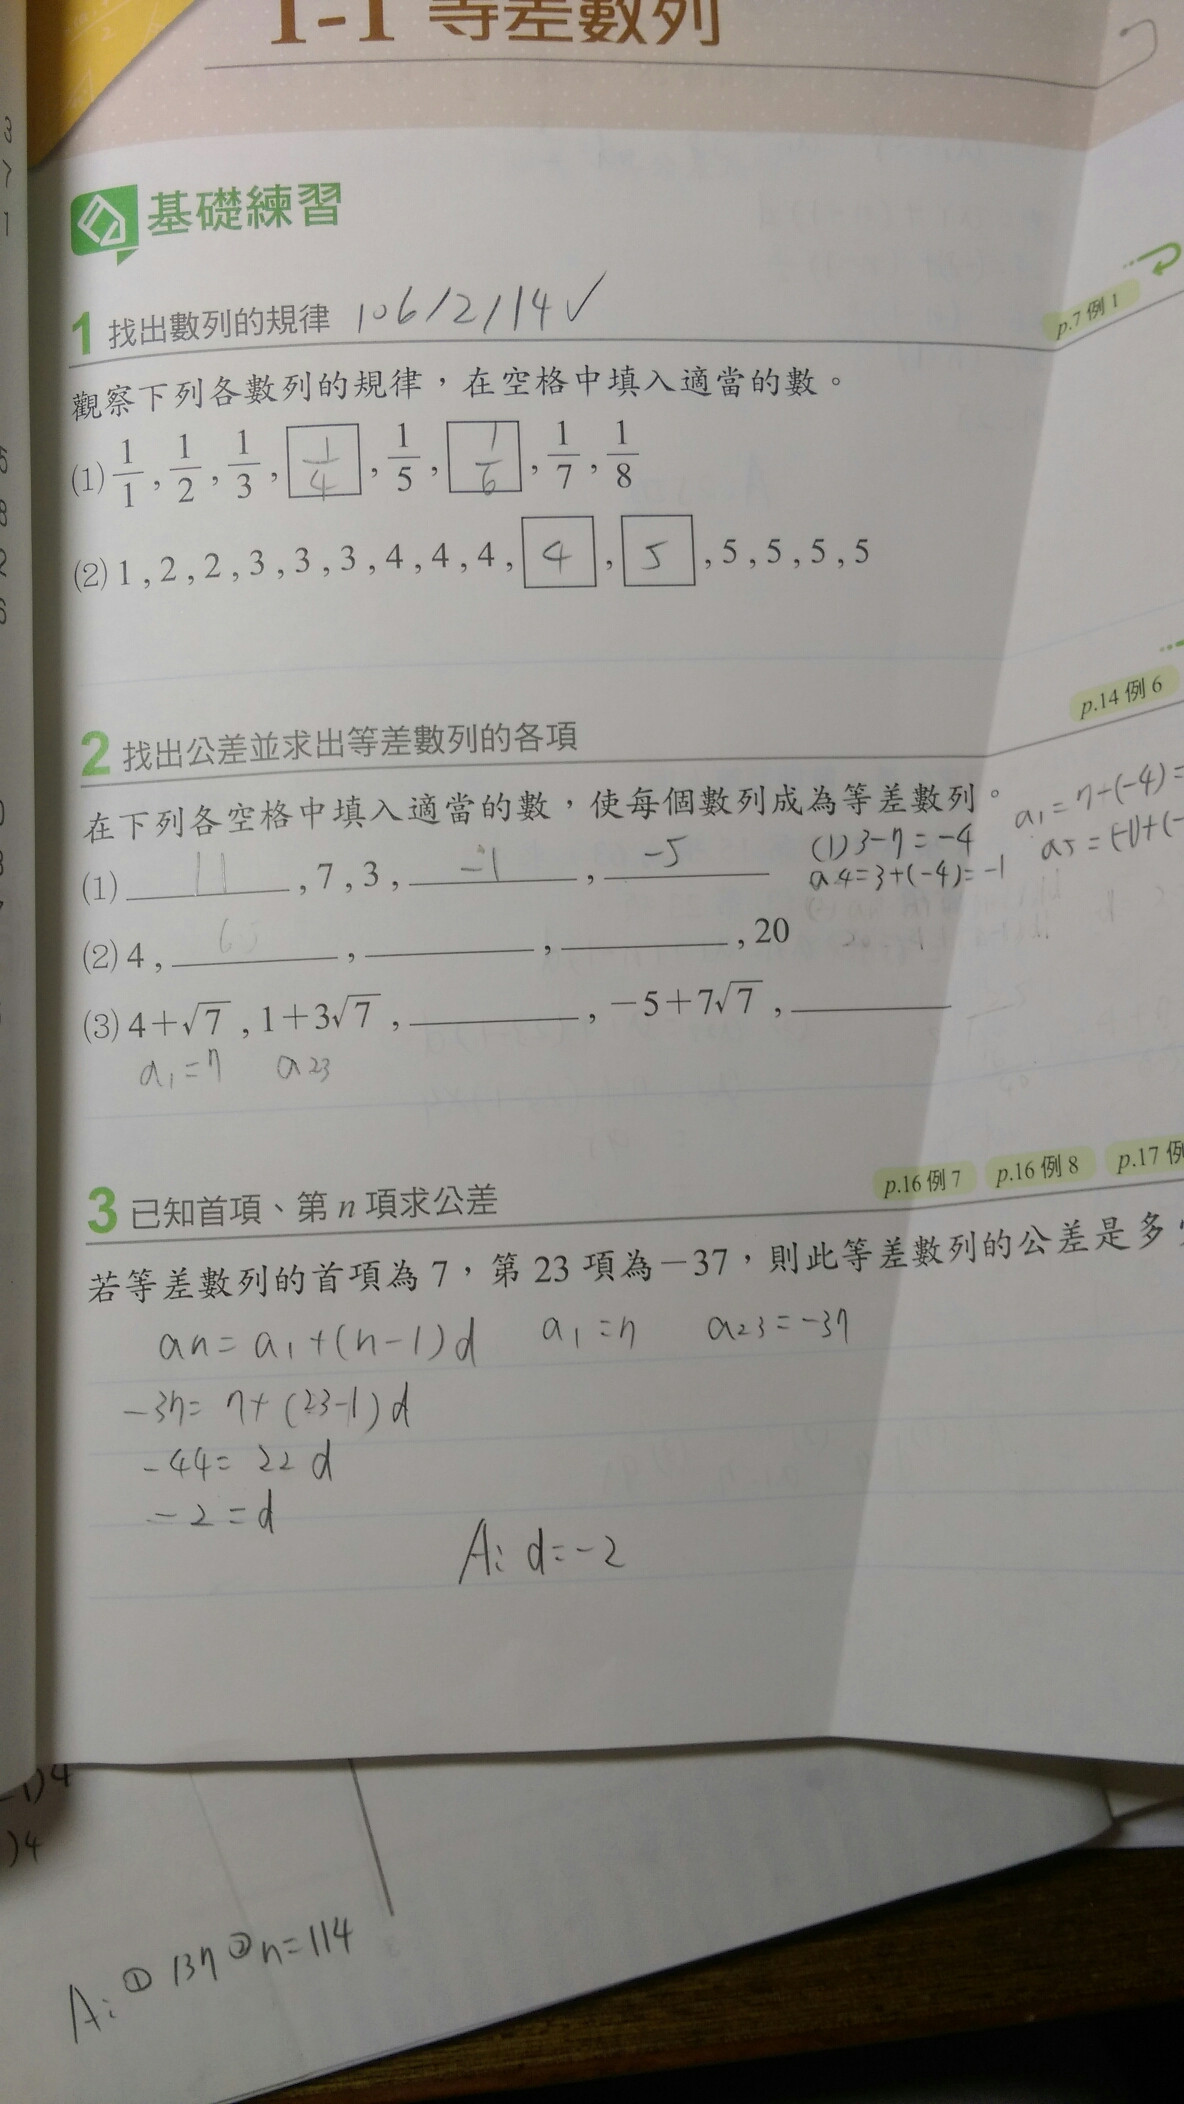 1-1 等差數列
基礎練習
1 找出數列的規律 106/2/14✓
p.7 例 1
觀察下列各數列的規律，在空格中填入適當的數。
(1) 1/1 , 1/2 , 1/3 , 1/4 , 1/5 , 1/6 , 1/7 , 1/8
(2) 1 , 2 , 2 , 3 , 3 , 3 , 4 , 4 , 4 , 4 , 5 , 5 , 5 , 5 , 5
p.14 例 6
2 找出公差並求出等差數列的各項
在下列各空格中填入適當的數，使每個數列成為等差數列。
(1) 11 , 7 , 3 , -1 , -5
(1) 3-7=-4
a4=3+(-4)=-1
a1=7+(-4)=
a5=(-1)+(-
(2) 4 , ＿＿ , ＿＿ , ＿＿ , 20
(3) 4+√7 , 1+3√7 , ＿＿ , －5+7√7 , ＿＿
a1=7 a23
p.16 例 7 p.16 例 8 p.17 例
3 已知首項、第 n 項求公差
若等差數列的首項為 7，第 23 項為－37，則此等差數列的公差是多
an=a1+(n-1)d a1=7 a23=-37
-37=7+(23-1)d
-44=22d
-2=d
A: d=-2
)4
A: ① 137 ② n=114